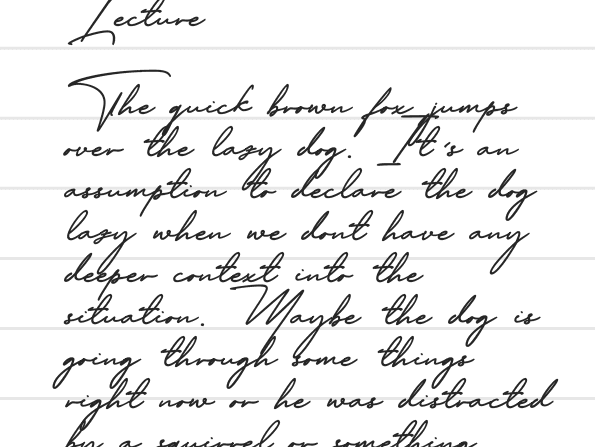 Lecture
The quick brown fox jumps
over the lazy dog. It's an
assumption to declare the dog
lazy when we dont have any
deeper context into the
situation. Maybe the dog is
going through some things
right now or he was distracted
by a squirrel or something